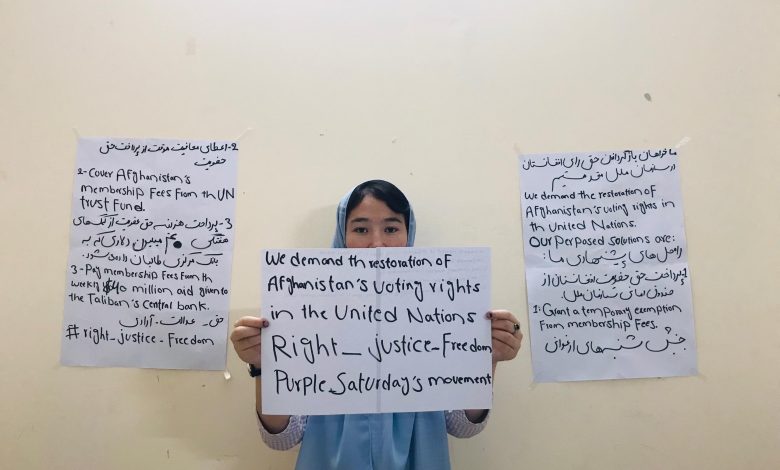 2-اعطای معافیت موقت از پرداخت حق
عضویت
2-Cover AFghanistan's
membership Fees From th UN
trust Fund.
3-پرداخت هزینه حق عضویت از کمک های
هفتگی میلیون دلاری که به
بانک مرکزی طالبان داده می شود.
3-Pay membership Fees From th
weekly $40 million aid given to
the Taliban's Central bank.
حق - عدالت - آزادی
#right_justice-Freedom
We demand th restoration oF
Afghanistan's voting rights
in the United Nations
Right_justice_Freedom
Purple_Saturday's movement
ما خواهان بازگرداندن حق رای افغانستان
از سازمان ملل متحد هستیم
We demand the restoration of
Afghanistan's voting rights in
th United Nations.
Our Perposed solutions are:
راه حل های پیشنهادی ما:
1-پرداخت حق عضویت افغانستان از
صندوق امانی سازمان ملل.
1: Grant a temporary exemption
From membership Fees.
جنبش شنبه های ارغوانی